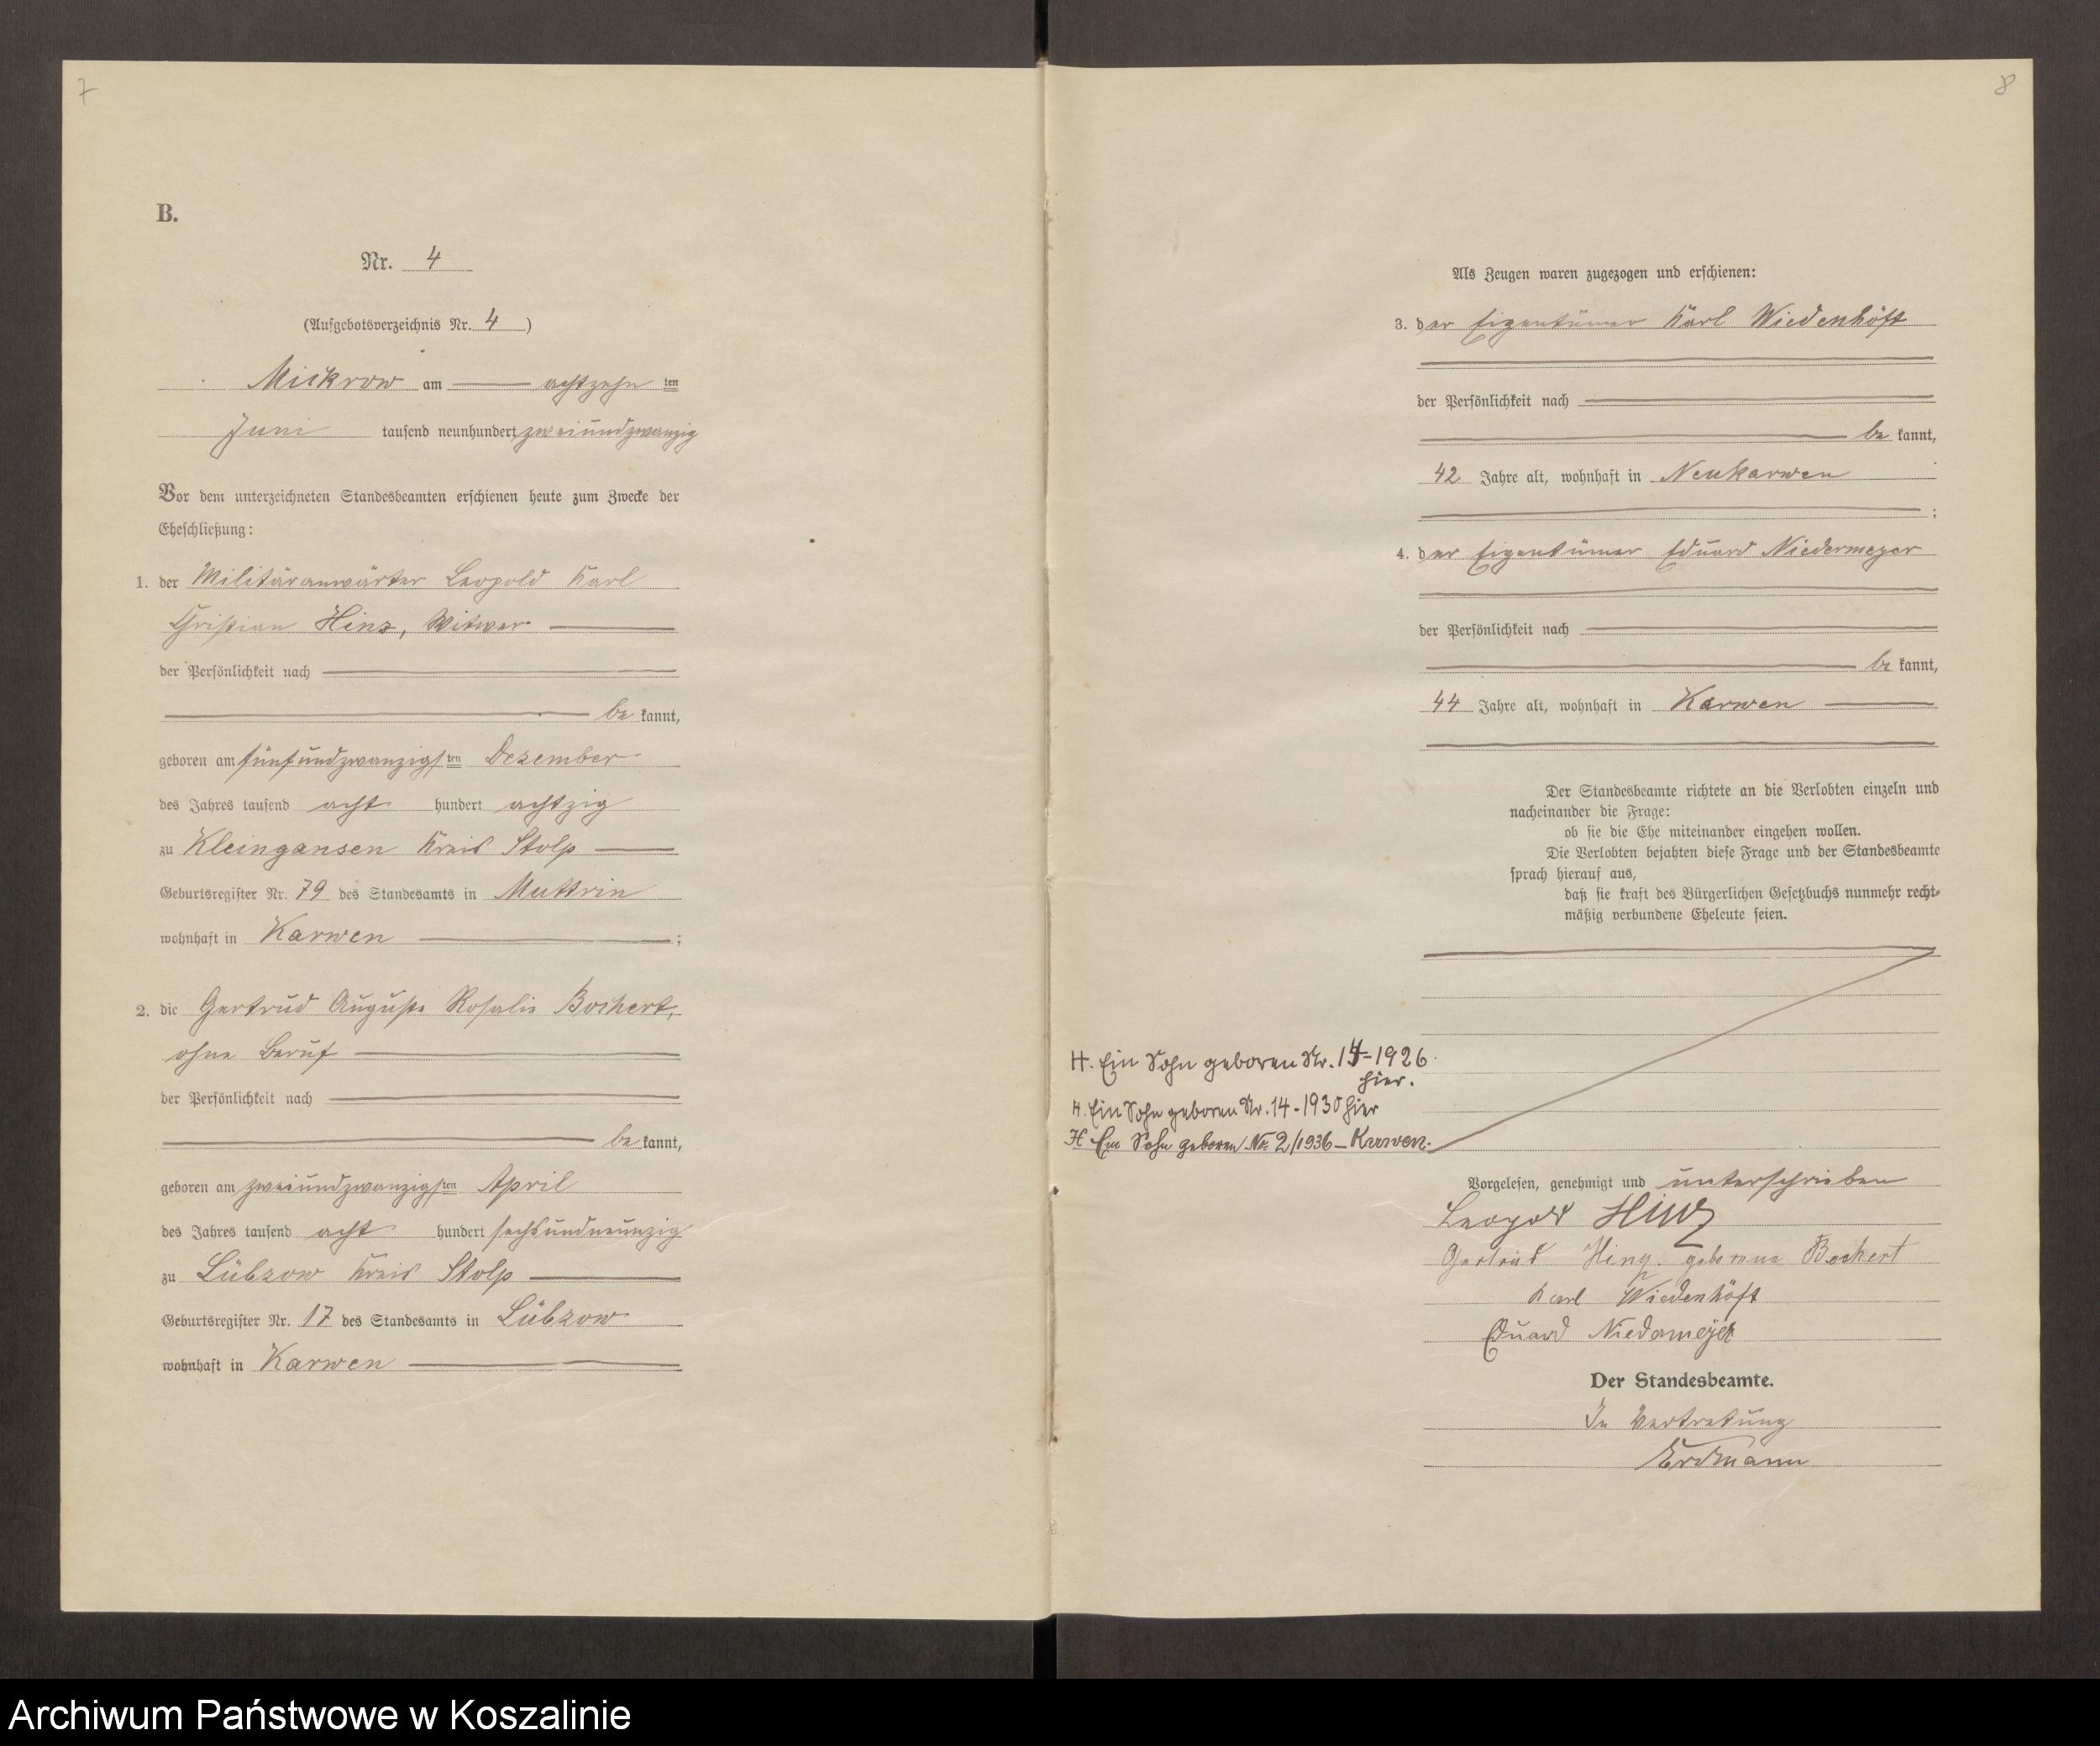 7
B.
Nr. 4
(Aufgebotsverzeichnis Nr. 4)
Mickrow am achtzehn ten
Juni tausend neunhundert zweiundzwanzig
Vor dem unterzeichneten Standesbeamten erschienen heute zum Zwecke der
Eheschließung:
1. der Militäranwärter Leopold Karl
Christian Hinz, Witwer
der Persönlichkeit nach
be kannt,
geboren am fünfundzwanzigsten Dezember
des Jahres tausend acht hundert achtzig
zu Kleingansen Kreis Stolp
Geburtsregister Nr. 79 des Standesamts in Muttrin
wohnhaft in Karwen ;
2. die Gertrud Auguste Rosalie Bochert,
ohne Beruf
der Persönlichkeit nach
be kannt,
geboren am zweiundzwanzigsten April
des Jahres tausend acht hundert sechsundneunzig
zu Lübzow Kreis Stolp
Geburtsregister Nr. 17 des Standesamts in Lübzow
wohnhaft in Karwen
8
Als Zeugen waren zugezogen und erschienen:
3. der Eigentümer Karl Wiedenhöft
der Persönlichkeit nach
be kannt,
42 Jahre alt, wohnhaft in Neukarwen
;
4. der Eigentümer Eduard Niedermeyer
der Persönlichkeit nach
be kannt,
44 Jahre alt, wohnhaft in Karwen
Der Standesbeamte richtete an die Verlobten einzeln und
nacheinander die Frage:
ob sie die Ehe miteinander eingehen wollen.
Die Verlobten bejahten diese Frage und der Standesbeamte
sprach hierauf aus,
daß sie kraft des Bürgerlichen Gesetzbuchs nunmehr recht-
mäßig verbundene Eheleute seien.
H. Ein Sohn geboren Nr. 14-1926
hier.
H. Ein Sohn geboren Nr. 14-1930 hier
H Ein Sohn geboren Nr. 2/1936 - Karwen.
Vorgelesen, genehmigt und unterschrieben
Leopold Hinz
Gertrud Hinz. geborene Bochert
Karl Wiedenhöft
Eduard Niedermeyer
Der Standesbeamte.
In Vertretung
Erdmann
Archiwum Państwowe w Koszalinie